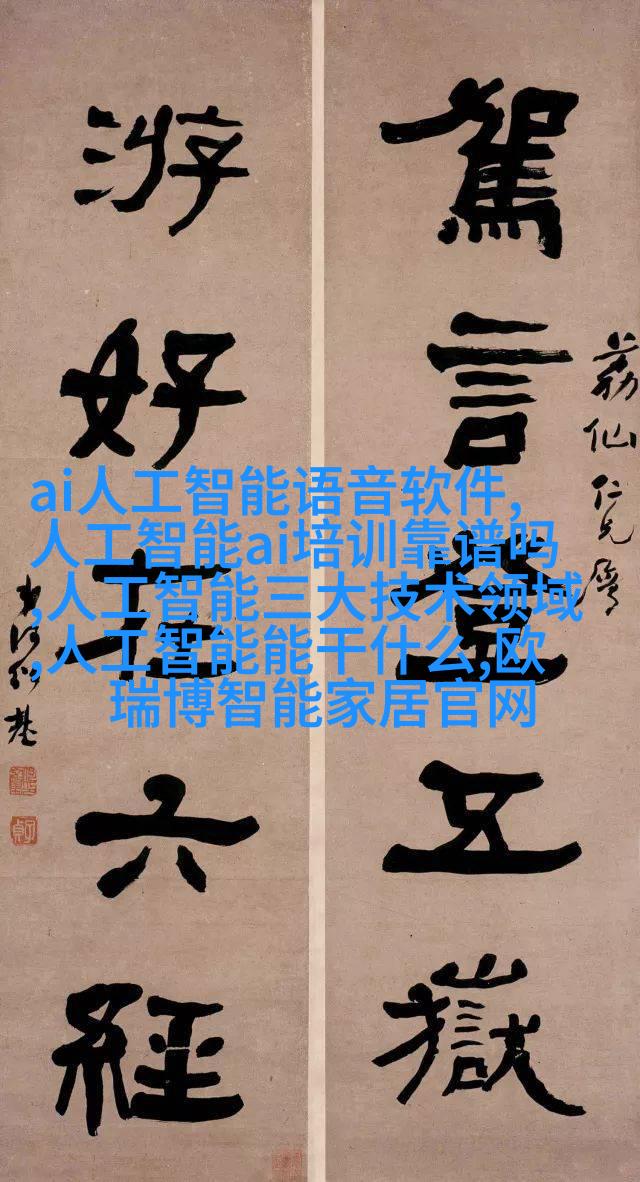 荔仙仁兄屬
駕言登五嶽
游好在六經
何紹基
子貞
ai人工智能语音软件,
人工智能ai培训靠谱吗
,人工智能三大技术领域
,人工智能能干什么,欧
瑞博智能家居官网